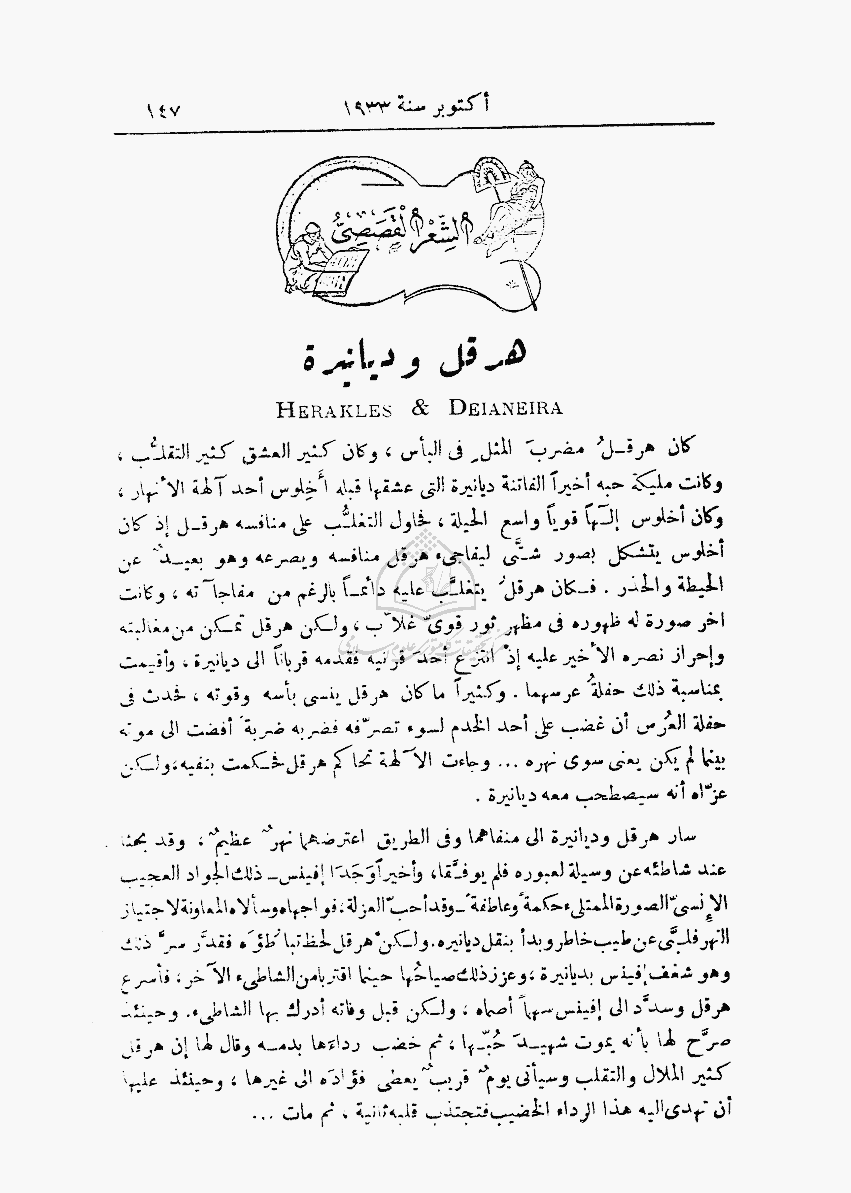 أكتوبر سنة ١٩٣٣ ١٤٧
الشِّعْرُ القَصَصِيُّ
هرقل وديانيرة
HERAKLES & DEIANEIRA
كان هرقـلُ مضربَ المثلِ فى البأس ، وكان كثير العشق كثير التقلُّب ،
وكانت مليكة حبه أخيراً الفاتنة ديانيرة التى عشقها قبله أخِلوس أحد آلهة الأنهار ،
وكان أخلوس إلـٰهاً قوياً واسع الحيلة ، فحاول التغلُّب على منافسه هرقـل إذ كان
أخلوس يتشكل بصور شتَّى ليفاجىء هرقل منافسه ويصرعه وهو بعيـدٌ عن
الحيطة والحذر . فـكان هرقلُ يتغلَّب عليه دائمـاً بالرغم من مفاجآته ، وكانت
اخر صورة له ظهوره فى مظهر ثور قوىّ غلاَّب ، ولـكن هرقل تمـكن من مغالبته
وإحراز نصره الأخير عليه إذ انتزع أحدَ قرنيه فقدمه قرباناً الى ديانيرة ، وأقيمت
بمناسبة ذلك حفلةُ عرسهما . وكثيراً ما كان هرقل ينسى بأسه وقوته ، فحدث فى
حفلة العُرس أن غضب على أحد الخدم لسوء تصرّفه فضربه ضربةً أفضت الى موته
بينما لم يكن يعنى سوى نهره ... وجاءت الآلهة تحاكم هرقل فحـكمت بنفيه، ولـكن
عزّاه أنه سيصطحب معه ديانيرة .
سار هرقل وديانيرة الى منفاهما وفى الطريق اعترضهما نهرٌ عظيمٌ ، وقد بحثا
عند شاطئه عن وسيلة لعبوره فلم يوفَّقا، وأخيراً وَجَدَا إفينس ـ ذلك الجواد العجيب
الإنسىّ الصورة الممتلىء حكمةً وعاطفةً ـ وقد أحبّ العزلة، فواجهاه وسألاه المعاونة لاجتياز
النهر فلبَّى عن طيب خاطر وبدأ بنقل ديانيره. ولـكنْ هرقل لحظ تباطُؤَه فقدَّر سرَّ ذلك
وهو شغف إفينس بديانيرة ، وعزز ذلك صياحُها حينما اقتربا من الشاطىء الآخر ، فأسرع
هرقل وسدَّد الى إفينس سهماً أصماه ، ولـكن قبل وفاته أدرك بها الشاطىء. وحينئذ
صرَّح لها بأنه يموت شهيـدَ حُبّـها ، ثم خضب رداءَها بدمـه وقال لها إن هرقل
كثير الملال والتقلب وسيأتى يومٌ قريبٌ يعطى فؤادَه الى غيرها ، وحينئذ عليها
أن تهدى اليه هذا الرداء الخضيب فتجتذب قلبه ثانية . ثم مات ...